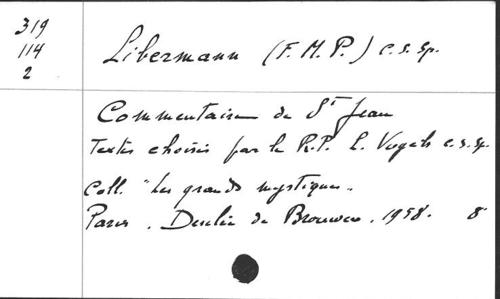 319
114
2
Libermann (F. M. P.) c. s. sp.
Commentaire de St Jean
Textes choisis par le R.P. L. Vogels c. s. sp.
Coll. "Les grands mystiques"
Paris. Desclée de Brouwer. 1958. 8°